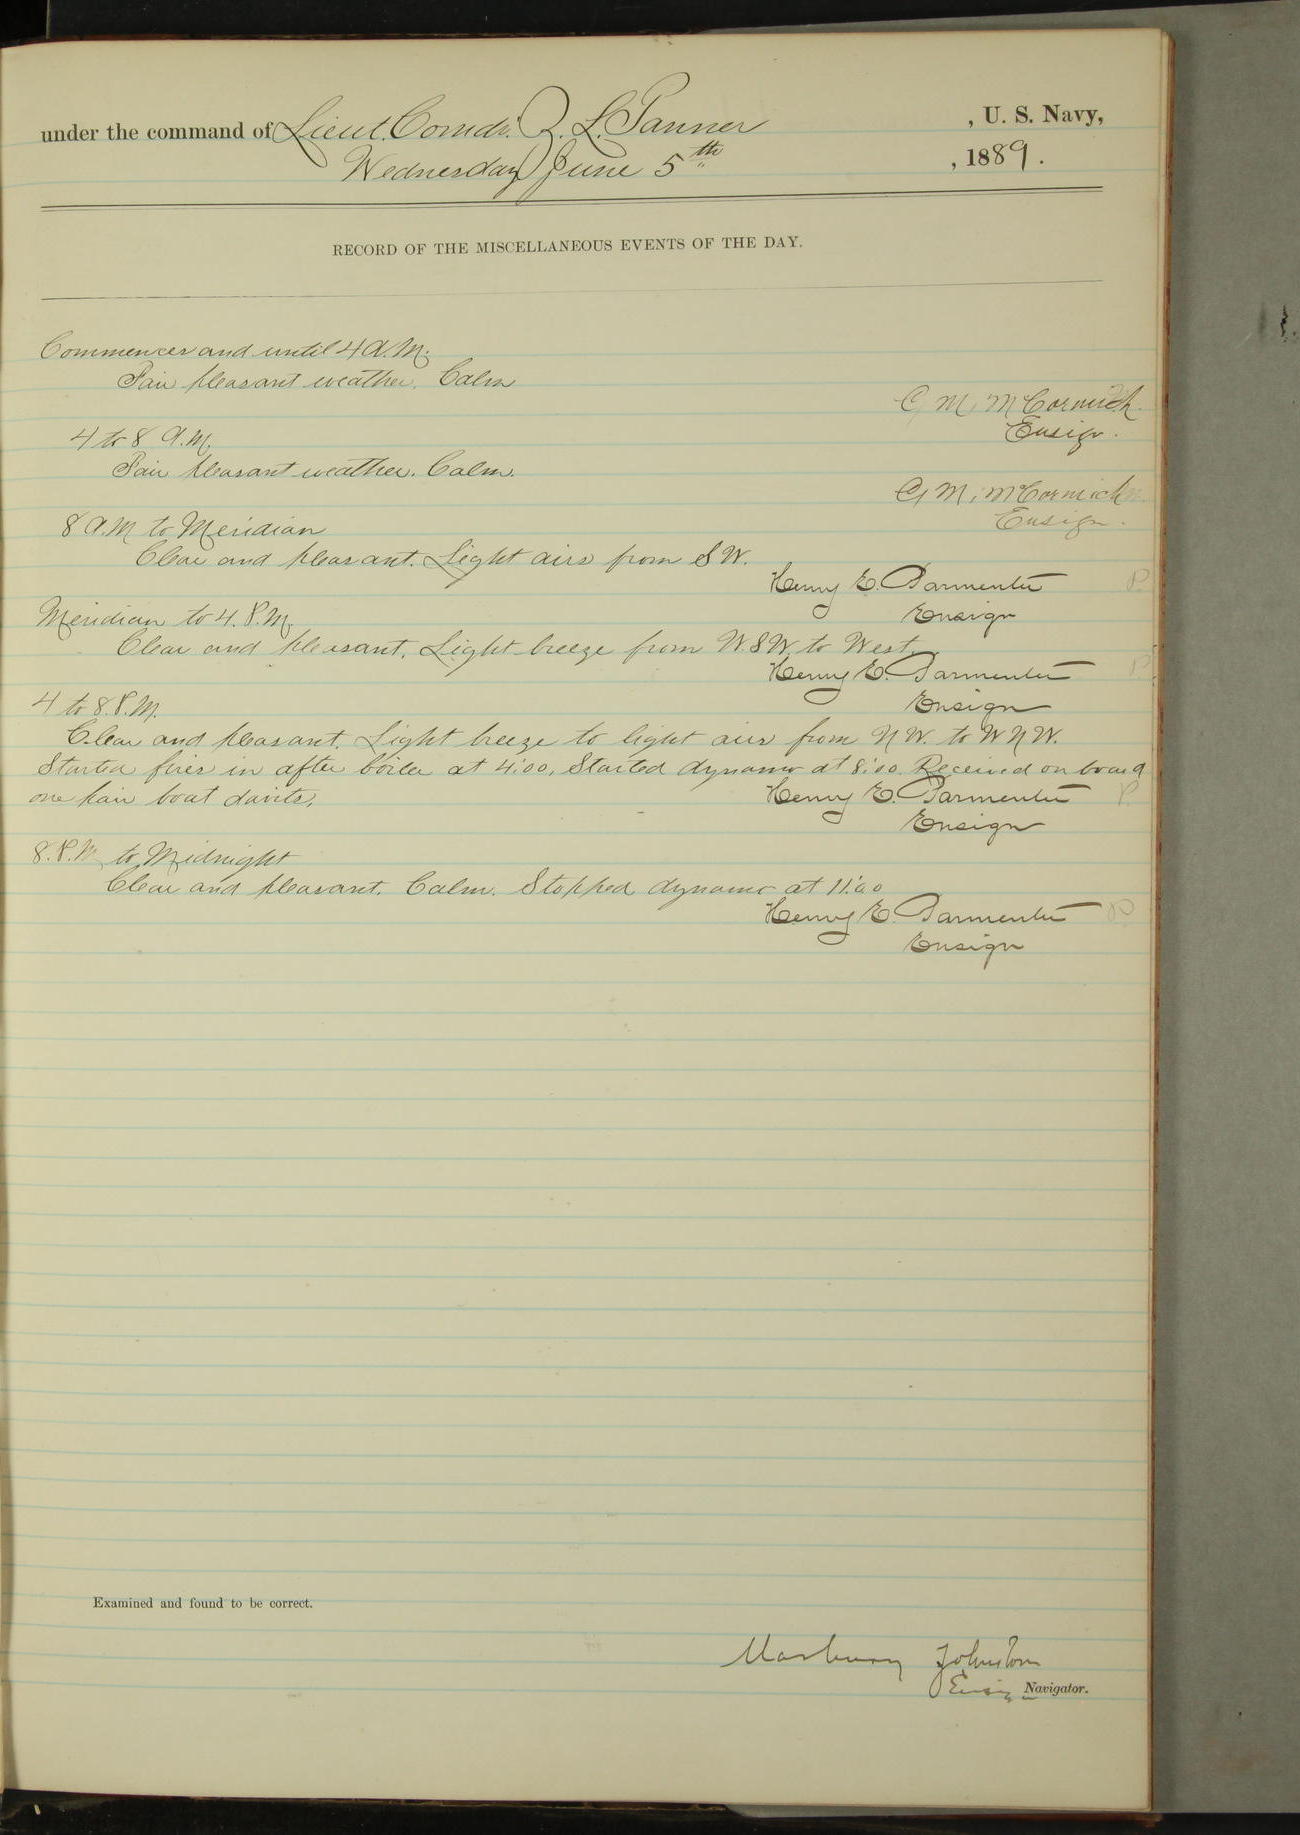 under the command of Lieut. Comdr. Z. L. Tanner , U. S. Navy,
Wednesday June 5th , 1889.
RECORD OF THE MISCELLANEOUS EVENTS OF THE DAY.
Commences and until 4 A.M.
Fair pleasant weather. Calm
G. M. McCormick.
Ensign.
4 to 8 A.M.
Fair pleasant weather. Calm.
G. M. McCormick
Ensign.
8 A.M to Meridian
Clear and pleasant. Light airs from S W.
Henry E. Parmenter
Ensign
Meridian to 4. P.M.
Clear and pleasant. Light breeze from W.S.W. to West.
Henry E. Parmenter
Ensign
4 to 8. P.M.
Clear and pleasant. Light breeze to light airs from N W. to W N W.
Started fires in after boiler at 4:00. Started dynamo at 8:00. Received on board
one pair boat davits.
Henry E. Parmenter P.
Ensign
8. P.M. to Midnight
Clear and pleasant. Calm. Stopped dynamo at 11:00
Henry E. Parmenter
Ensign
Examined and found to be correct.
Marbury Johnston
Ensign Navigator.